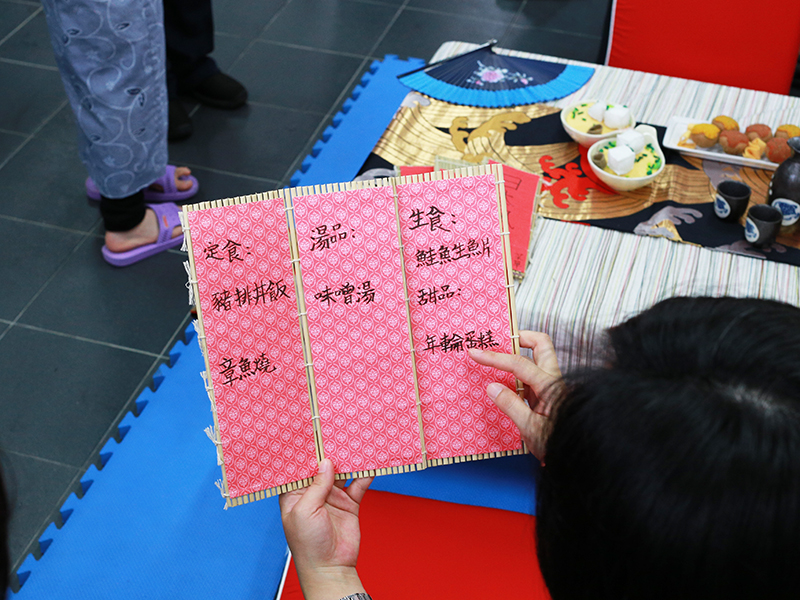 定食:
豬排丼飯
章魚燒
湯品:
味噌湯
生食:
鮭魚生魚片
甜品:
年輪蛋糕